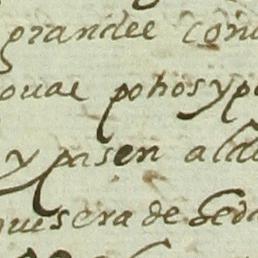 grandee con
ouae pohos y p
y pasen al
quesera de